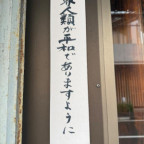 界人類が平和でありますように